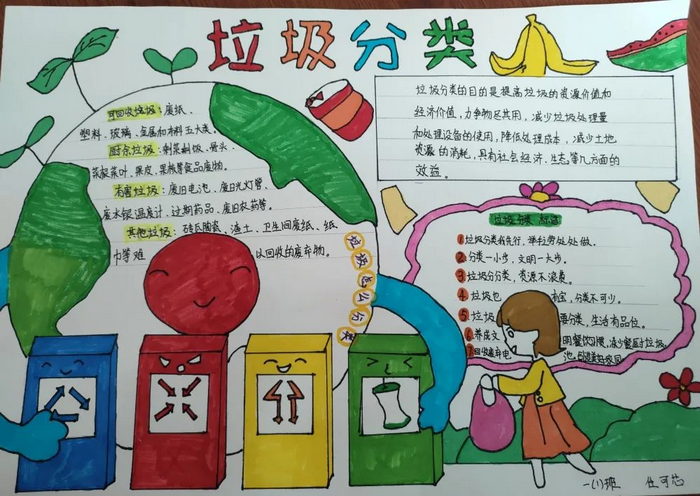 垃圾分类
可回收垃圾:废纸、
塑料、玻璃、金属和布料五大类。
厨余垃圾:剩菜剩饭、骨头、
菜根菜叶、果皮、果核等食品废物。
有害垃圾:废旧电池、废日光灯管、
废水银温度计、过期药品、废旧农药等。
其他垃圾:砖瓦陶瓷、渣土、卫生间废纸、纸
巾等难 以回收的废弃物。
垃圾怎么分类
垃圾分类的目的是提高垃圾的资源价值和
经济价值,力争物尽其用,减少垃圾处理量
和处理设备的使用,降低处理成本,减少土地
资源的消耗,具有社会、经济、生态等几方面的
效益。
垃圾分类 标语
1垃圾分类我先行,举利旁处处做。
2分类一小步,文明一大步。
3垃圾分分类,资源不浪费。
4垃圾也 宝,分类不可少。
5垃圾 要分类,生活有品位。
6养成文 用餐饮习惯,减少餐厨垃圾。
7回收废弃电 池,
一(1)班 任可芯